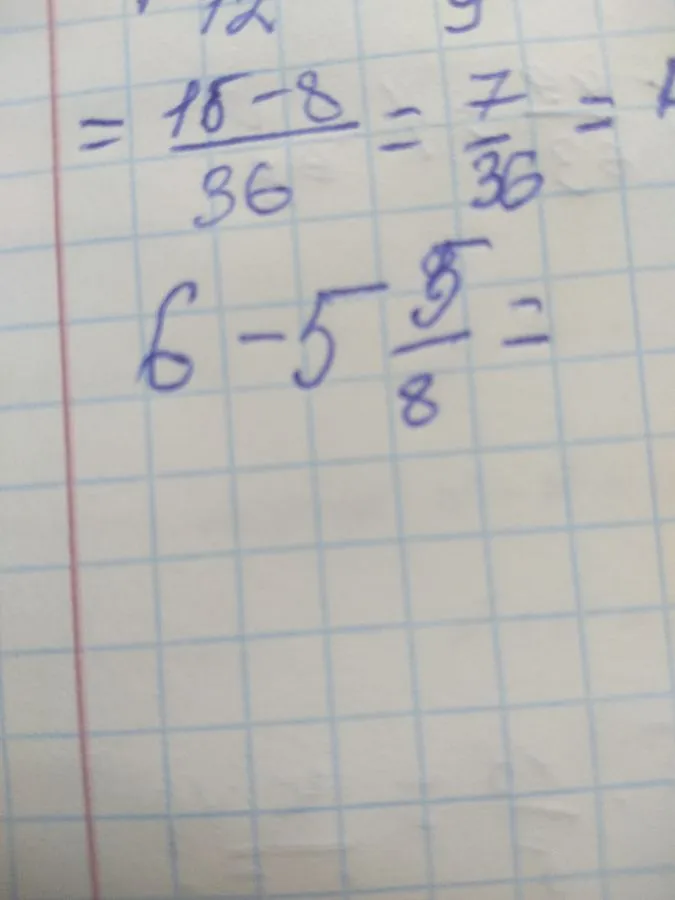 12 9
= 15-8/36 = 7/36 =
6 - 5 5/8 =